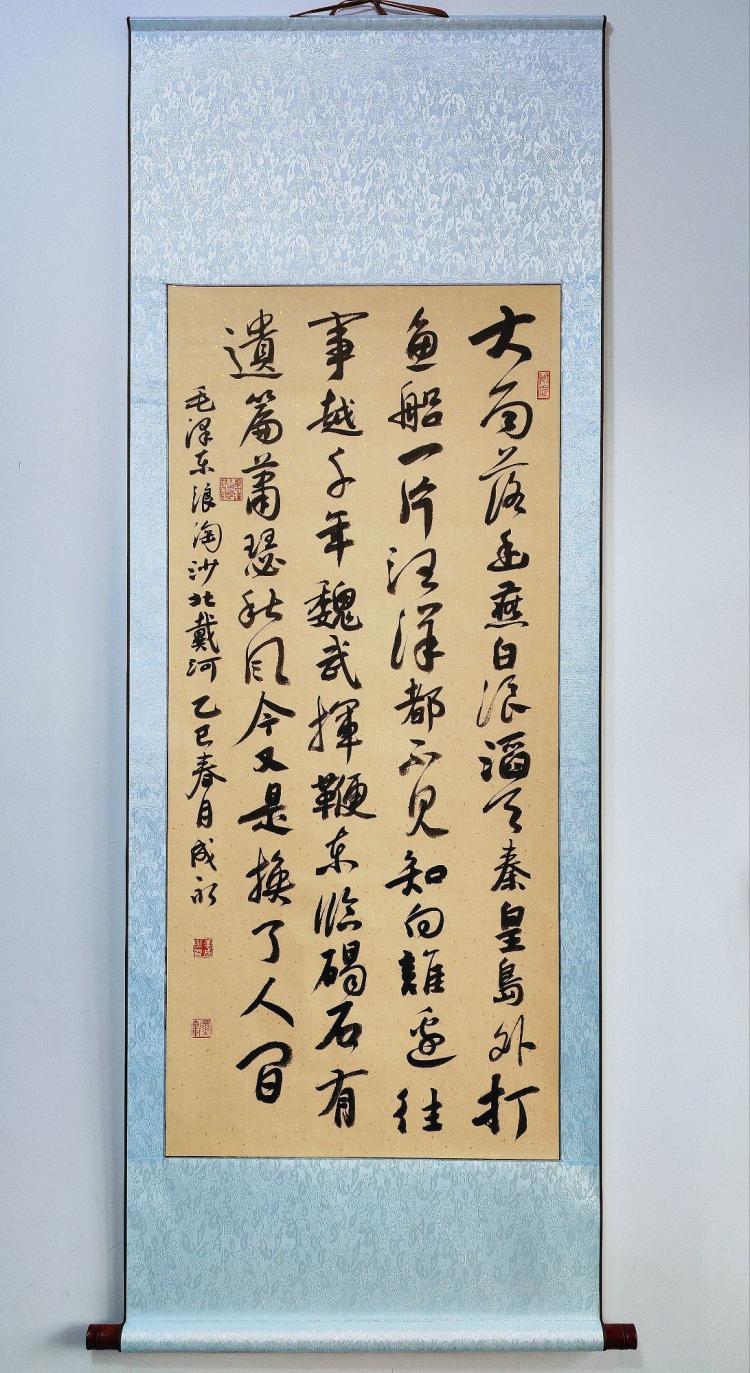 大雨落幽燕白浪滔天秦皇島外打
魚船一片汪洋都不見知向誰邊往
事越千年魏武揮鞭东臨碣石有
遺篇蕭瑟秋风今又是換了人间
毛泽东浪淘沙北戴河乙巳春月成永